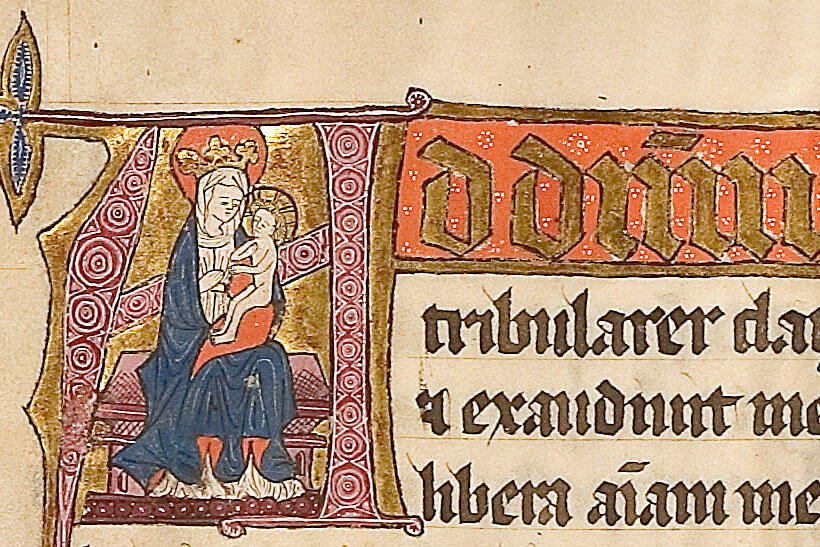 Ad dnm
tribularer cla
⁊ exaudiuit me
libera aīam me